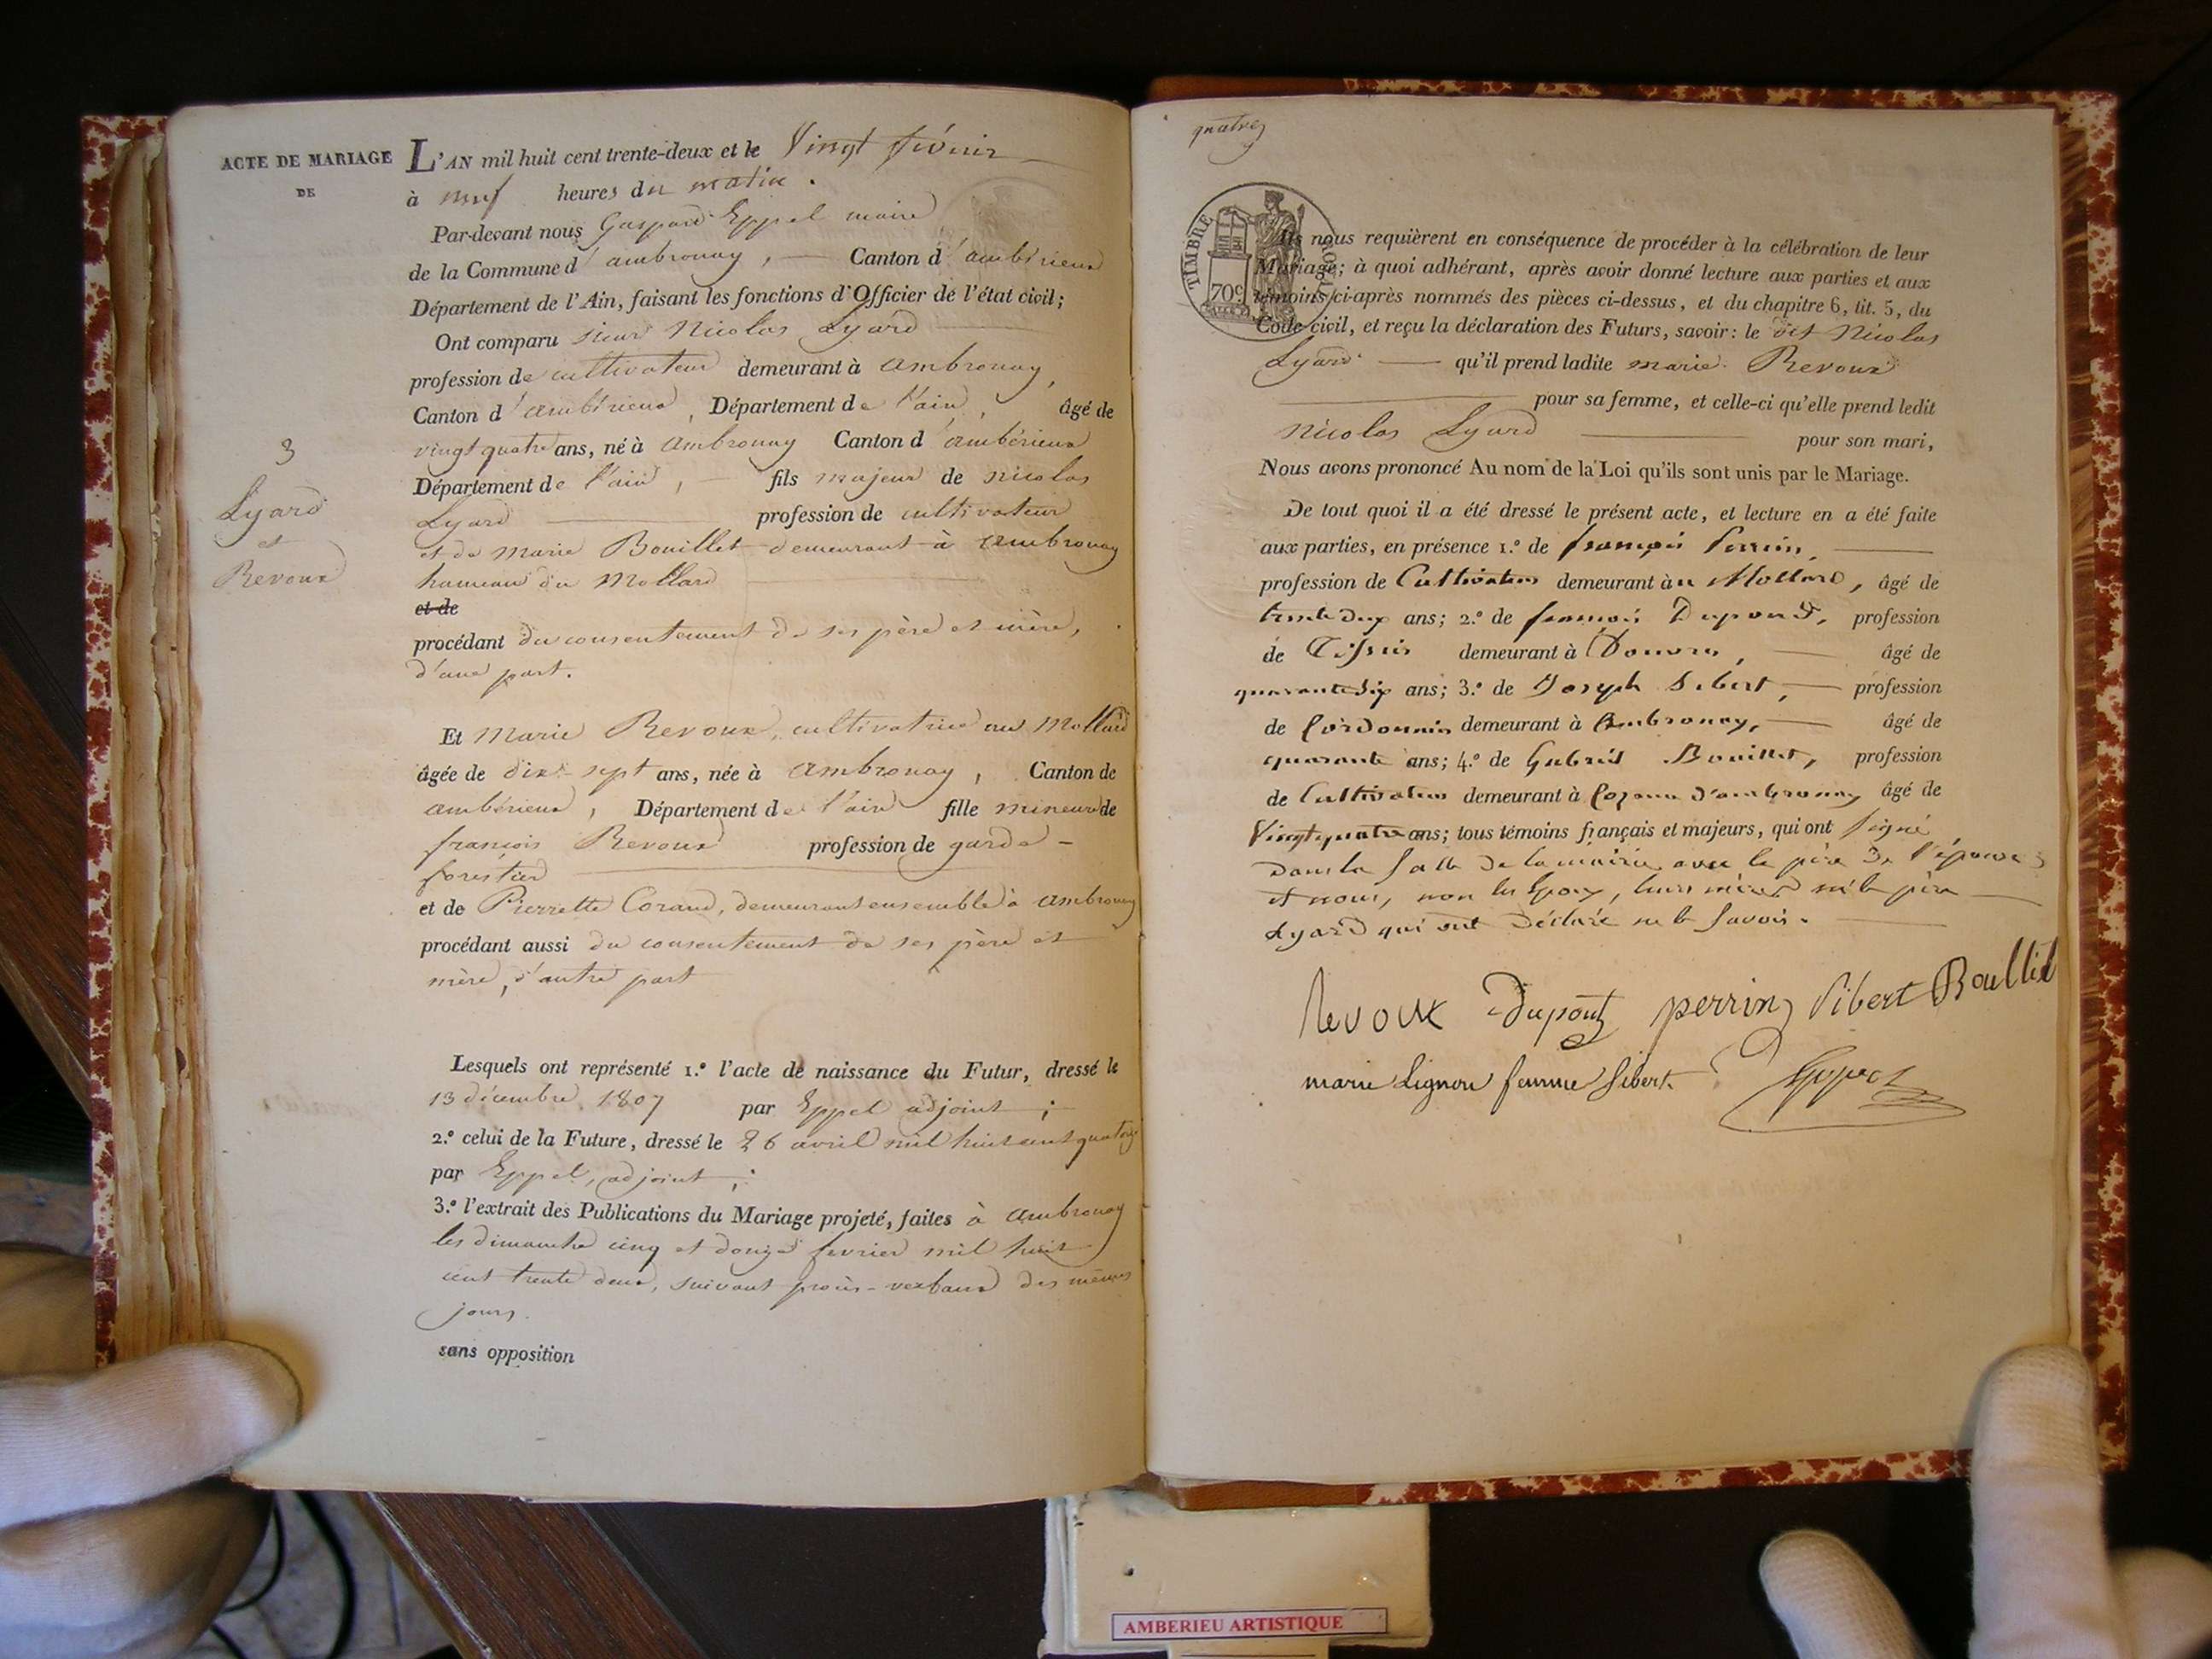 ACTE DE MARIAGE
DE
3
Lyard
et
Revoux
L'AN mil huit cent trente-deux et le Vingt février
à neuf heures du matin.
Par-devant nous Gaspard Eppel maire
de la Commune d'ambronay, Canton d'ambérieux
Département de l'Ain, faisant les fonctions d'Officier de l'état civil;
Ont comparu sieur Nicolas Lyard
profession de cultivateur demeurant à ambronay,
Canton d'ambérieux, Département de l'ain, âgé de
vingt quatre ans, né à ambronay Canton d'ambérieux
Département de l'ain, fils majeur de nicolas
Lyard profession de cultivateur
et de marie Bouillet demeurant à ambronay
hameau du Mollard
et de
procédant du consentement de ses père et mère,
d'une part.
Et Marie Revoux, cultivatrice au Mollard
âgée de dix-sept ans, née à ambronay, Canton de
ambérieux, Département de l'ain fille mineure de
françois Revoux profession de garde-
forestier
et de Pierrette Corand, demeurant ensemble à ambronay
procédant aussi du consentement de ses père et
mère, d'autre part
Lesquels ont représenté 1.º l'acte de naissance du Futur, dressé le
13 décembre, 1807 par Eppel adjoint;
2.º celui de la Future, dressé le 26 avril mil huit cent quatorze
par Eppel, adjoint;
3.º l'extrait des Publications du Mariage projeté, faites à ambronay
les dimanche cinq et douze fevrier mil huit
cent trente deux, suivant procès-verbaux des mêmes
jours.
sans opposition
quatre
TIMBRE ROYAL
70c
Ils nous requièrent en conséquence de procéder à la célébration de leur
Mariage; à quoi adhérant, après avoir donné lecture aux parties et aux
témoins ci-après nommés des pièces ci-dessus, et du chapitre 6, tit. 5, du
Code civil, et reçu la déclaration des Futurs, savoir: le dit Nicolas
Lyard qu'il prend ladite marie Revoux
pour sa femme, et celle-ci qu'elle prend ledit
Nicolas Lyard pour son mari,
Nous avons prononcé Au nom de la Loi qu'ils sont unis par le Mariage.
De tout quoi il a été dressé le présent acte, et lecture en a été faite
aux parties, en présence 1.º de françois Perrin,
profession de Cultivateur demeurant au Mollard, âgé de
trente deux ans; 2.º de françois Dupond, profession
de Tissier demeurant à Douvres, âgé de
quarante six ans; 3.º de Joseph Sibert, profession
de Cordonnier demeurant à Ambronay, âgé de
quarante ans; 4.º de Gabriel Bouillet, profession
de Cultivateur demeurant à d'ambronay âgé de
Vingt quatre ans; tous témoins français et majeurs, qui ont signé
dans la salle de la mairie avec le père de l'épouse
et nous, non les Epoux, leurs mères ni le père
Lyard qui ont Déclaré ne le Savoir.
Revoux Dupont perrin Sibert Boullid
marie Lignon femme Sibert Eppel
AMBERIEU ARTISTIQUE